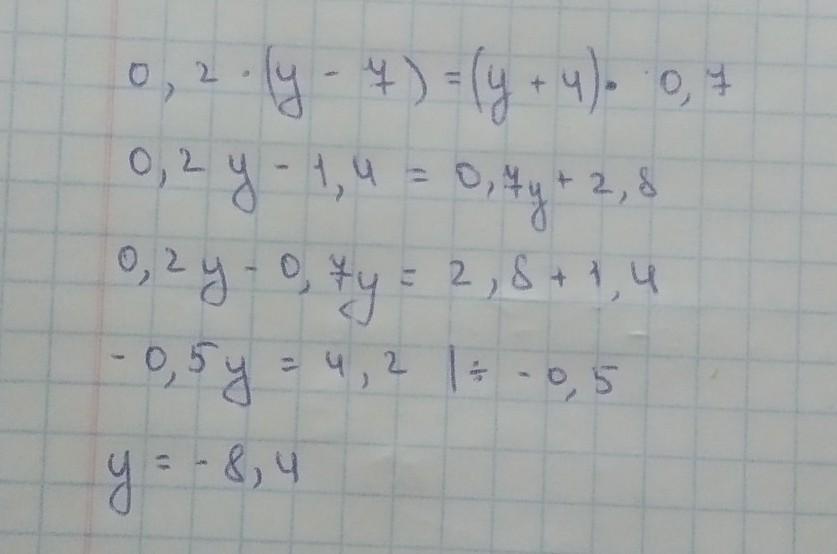 0,2 · (y - 7) = (y + 4) · 0,7
0,2y - 1,4 = 0,7y + 2,8
0,2y - 0,7y = 2,8 + 1,4
-0,5y = 4,2 | ÷ -0,5
y = -8,4